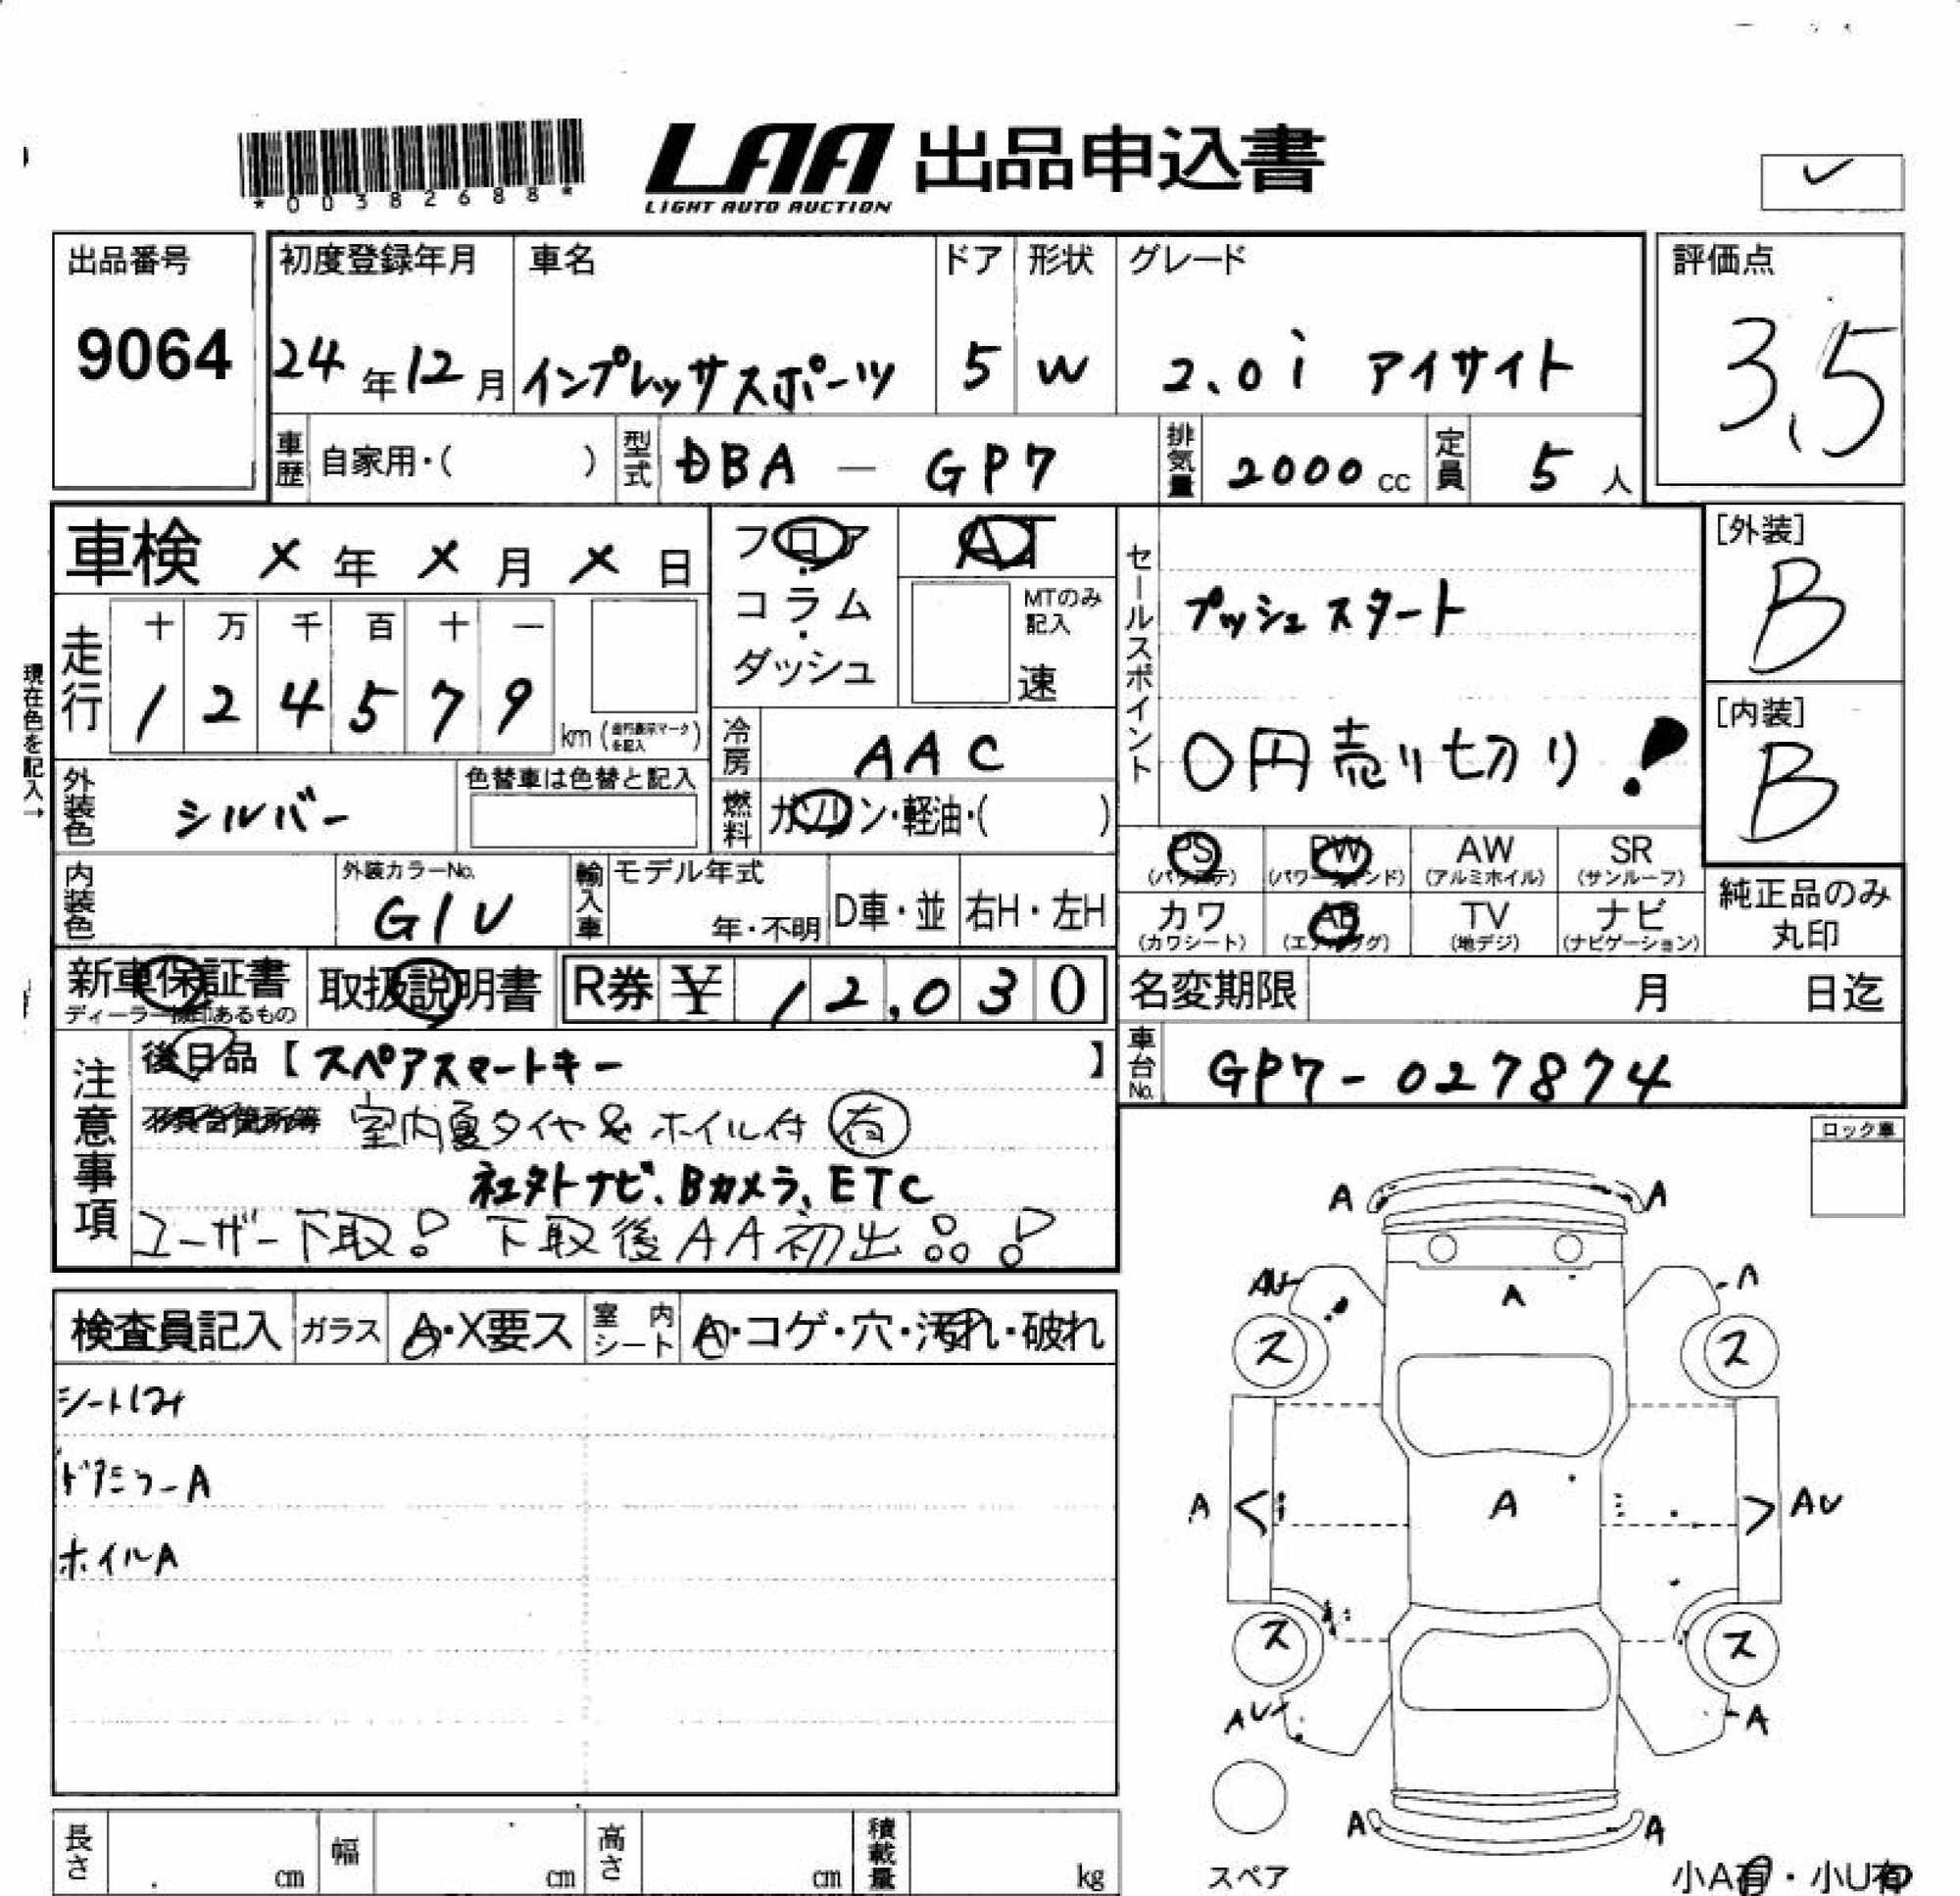 *00382688*
LAA 出品申込書
LIGHT AUTO AUCTION
✓
出品番号
9064
初度登録年月 車名 ドア 形状 グレード
24年12月 インプレッサスポーツ 5 W 2.0i アイサイト
評価点
3.5
車歴 自家用・( ) 型式 DBA — GP7 排気量 2000 cc 定員 5 人
車検 X 年 X 月 X 日
フロア・コラム・ダッシュ
AT
MTのみ記入
速
セールスポイント
プッシュスタート
0円売り切り!
[外装]
B
[内装]
B
現在色を記入→
走行
十 万 千 百 十 一
1 2 4 5 7 9 km (走行表示マークを記入)
冷房 AAC
外装色 シルバー
色替車は色替と記入
燃料 ガソリン・軽油・( )
PS (パワステ) PW (パワーウィンド) AW (アルミホイル) SR (サンルーフ)
カワ (カワシート) AB (エアバッグ) TV (地デジ) ナビ (ナビゲーション)
純正品のみ丸印
内装色
外装カラーNo.
G1U
輸入車
モデル年式
年・不明
D車・並 右H・左H
新車保証書
取扱説明書
R券 ¥ 12,030
名変期限 月 日迄
車台No. GP7-027874
注意事項
後日品【スペアスマートキー】
不具合箇所等 室内夏タイヤ&ホイル付 有
社外ナビ、Bカメラ、ETC
ユーザー下取! 下取後AA初出!
ロック車
検査員記入 ガラス A・X要ス 室内シート A・コゲ・穴・汚れ・破れ
ドアミラーA
ホイルA
A A
AU A
A
ス ス
A A AU
ス ス
AU A
A A
スペア
長さ cm 幅 cm 高さ cm 積載量 kg
小A有・小U有